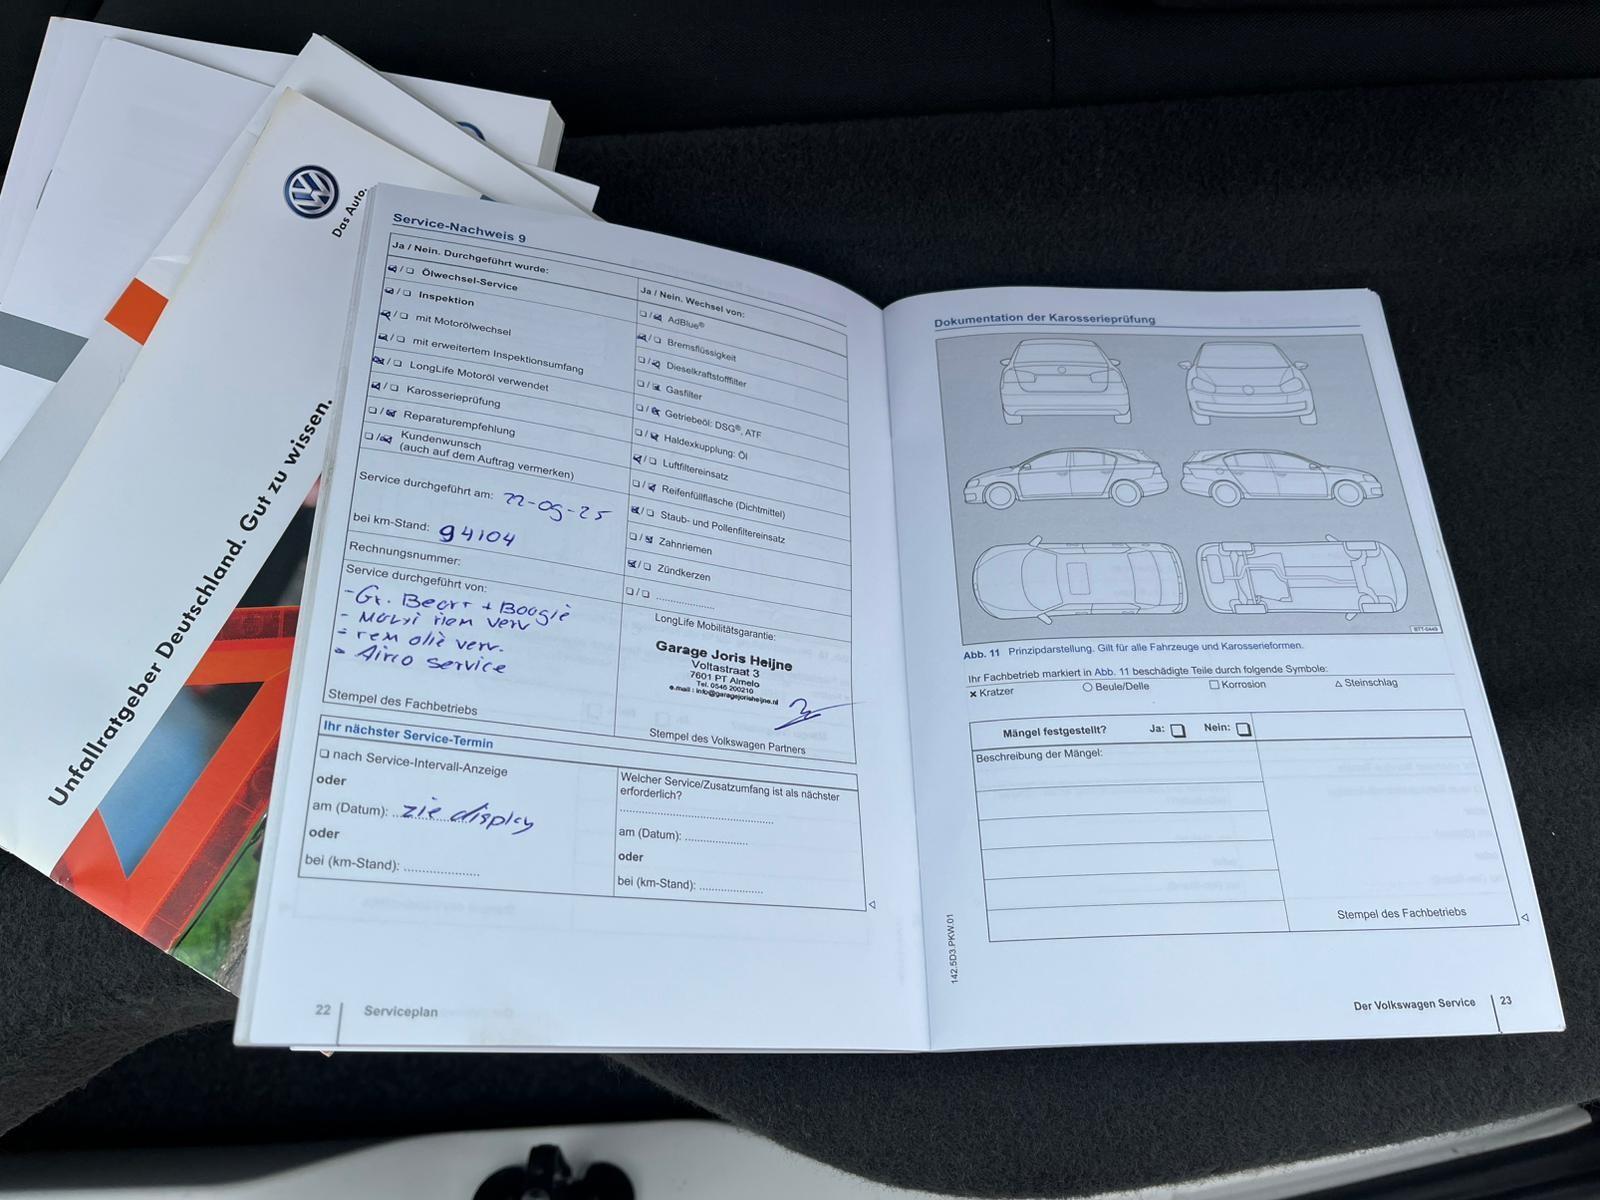 Das Auto.
Unfallratgeber Deutschland. Gut zu wissen.
Service-Nachweis 9
Ja / Nein. Durchgeführt wurde:
Ölwechsel-Service
Inspektion
mit Motorölwechsel
mit erweitertem Inspektionsumfang
LongLife Motoröl verwendet
Karosserieprüfung
Reparaturempfehlung
Kundenwunsch
(auch auf dem Auftrag vermerken)
Service durchgeführt am: 22-09-25
bei km-Stand: 94104
Rechnungsnummer:
Service durchgeführt von:
- Gr. Beurt + Boogie
- Multi riem verv
- rem olie verv.
- Airco service
Stempel des Fachbetriebs
Ja / Nein. Wechsel von:
AdBlue®
Bremsflüssigkeit
Dieselkraftstofffilter
Gasfilter
Getriebeöl: DSG®, ATF
Haldexkupplung: Öl
Luftfiltereinsatz
Reifenfüllflasche (Dichtmittel)
Staub- und Pollenfiltereinsatz
Zahnriemen
Zündkerzen
LongLife Mobilitätsgarantie:
Garage Joris Heijne
Voltastraat 3
7601 PT Almelo
Tel. 0546 200210
e.mail : info@garagejorisheijne.nl
Stempel des Volkswagen Partners
Ihr nächster Service-Termin
nach Service-Intervall-Anzeige
oder
am (Datum): zie display
oder
bei (km-Stand): ....................
Welcher Service/Zusatzumfang ist als nächster
erforderlich?
am (Datum): ....................
oder
bei (km-Stand): ....................
22 Serviceplan
Dokumentation der Karosserieprüfung
Abb. 11 Prinzipdarstellung. Gilt für alle Fahrzeuge und Karosserieformen.
Ihr Fachbetrieb markiert in Abb. 11 beschädigte Teile durch folgende Symbole:
× Kratzer ○ Beule/Delle □ Korrosion △ Steinschlag
Mängel festgestellt? Ja: Nein:
Beschreibung der Mängel:
Stempel des Fachbetriebs
142.5D3.PKW.01
Der Volkswagen Service 23